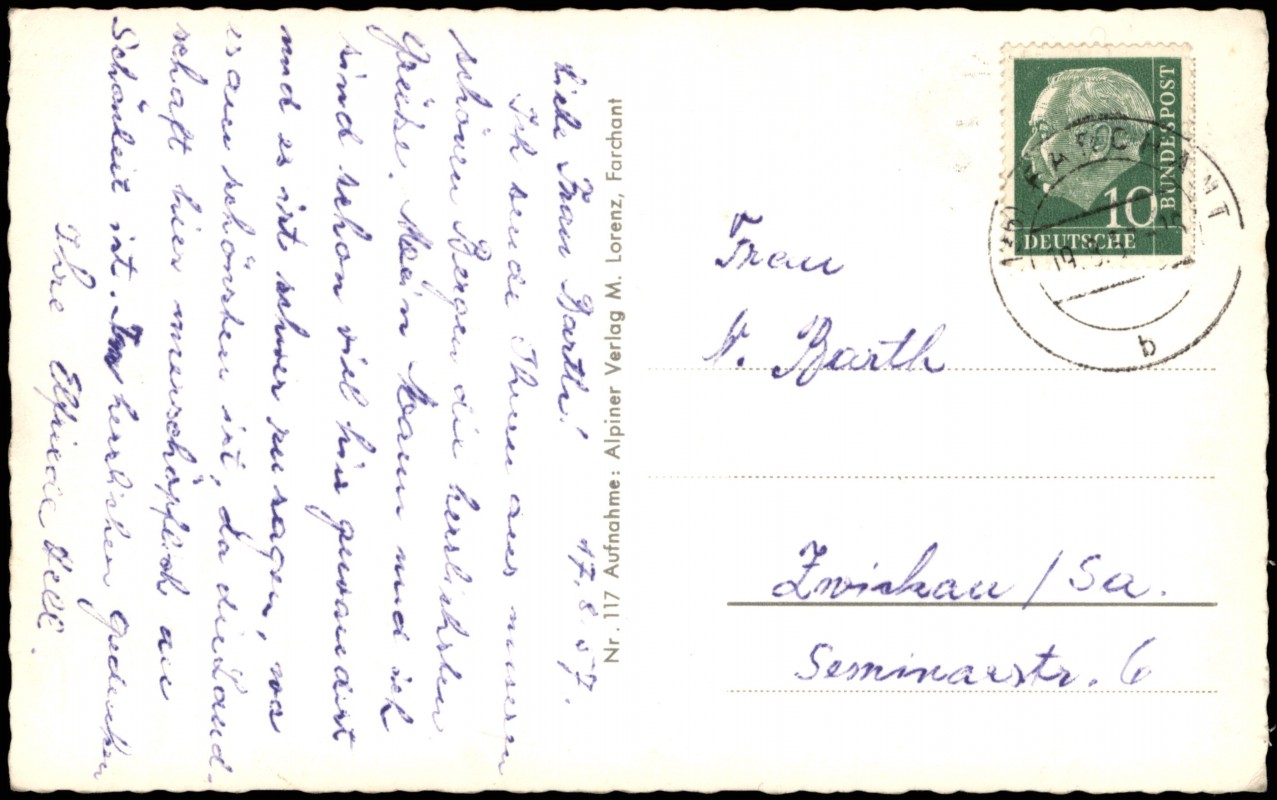 Liebe Frau Barth! 17.8.57.
Ich sende Ihnen aus unseren
schönen Bergen die herzlichsten
Grüsse. Mein Mann und ich
sind schon viel hier gewandert
und es ist schwer zu sagen, wo
es am schönsten ist, da die Land-
schaft hier unerschöpflich an
Schönheit ist. In herzlichem Gedenken
Ihre Elfriede Hell.
Nr. 117 Aufnahme: Alpiner Verlag M. Lorenz, Farchant
DEUTSCHE
BUNDESPOST
10
FARCHANT
b
Frau
Barth
Zwickau / Sa.
Seminarstr. 6